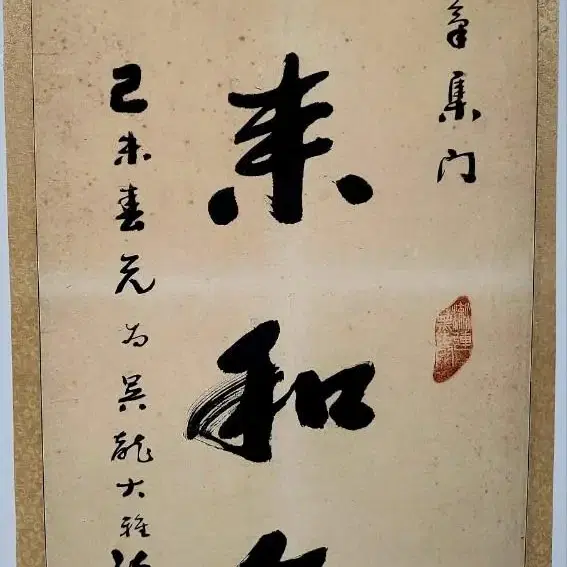 集门
来和
己未春元为吳龍大雅